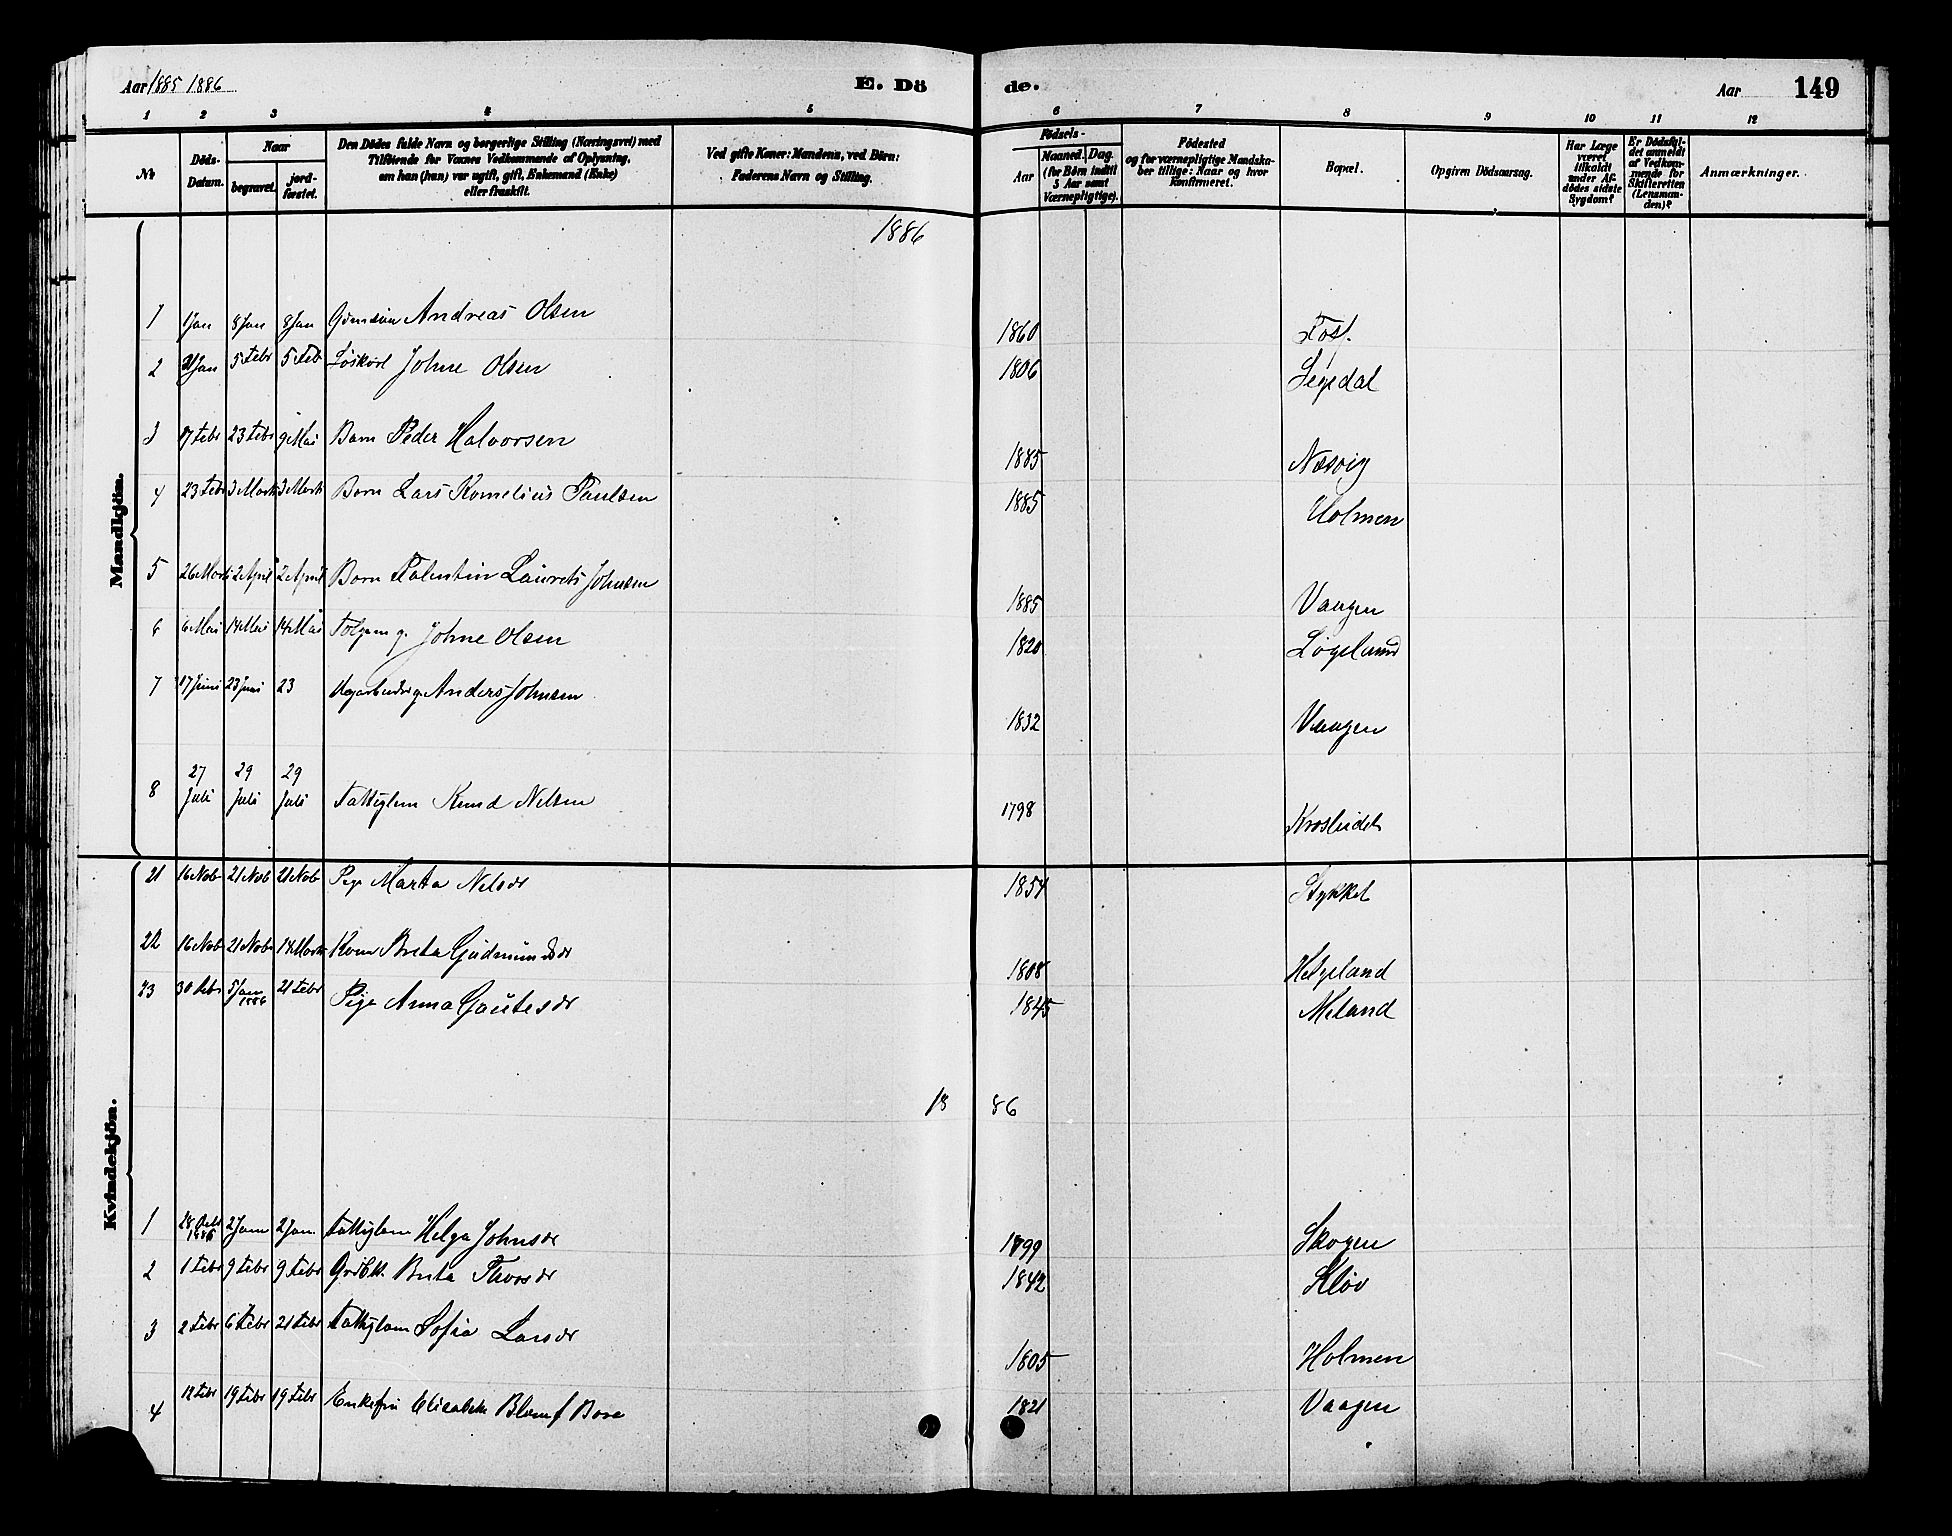 Aar 1885 1886 E. Dö de. Aar 149
1 2 3 4 5 6 7 8 9 10 11 12
No
Döds-Datum.
Naar
begravet.
jord-fæstet.
Den Dödes fulde Navn og borgerlige Stilling (Næringsvei) med
Tilföiende for Voxnes Vedkommende af Oplysning,
om han (hun) var ugift, gift, Enkemand (Enke)
eller fraskilt.
Ved gifte Koner: Mandens, ved Börn:
Faderens Navn og Stilling.
Födsels-
Aar
Maaned. Dag.
(for Börn indtil
5 Aar samt
Værnepligtige).
Födested
og for værnepligtige Mandska-
ber tillige: Naar og hvor
Konfirmeret.
Bopæl.
Opgiven Dödsaarsag.
Har Læge
været
tilkaldt
under Af-
dödes sidste
Sygdom?
Er Dödsfal-
det anmeldt
af Vedkom-
mende for
Skifteretten
(Lensman-
den)?
Anmærkninger.
Mandkjön.
1886
1 1 Jan 8 Jan 8 Jan Andreas Olsen 1860
2 31 Jan 5 Febr 5 Feb Johne Olsen 1806
3 17 Febr 23 Febr 9 Mai Barn Peder Halvorsen 1885 Næsvig
4 23 Febr 3 Marts 3 Marts Barn Lars Kornelius Paulsen 1885 Holmen
5 26 Marts 2 April 2 April Barn Laurits Johnsen 1885 Vaagen
6 6 Mai 14 Mai 14 Mai Johne Olsen 1820
7 17 Juni 23 Juni 23 Anders Johnsen 1832 Vaagen
8 27 Juli 29 Juli 29 Juli Fattiglem Knud Nelsen 1798
Kvindekjön.
21 16 Nob 21 Nob 21 Nob Pige Marta Nelsdr 1854 Stykket
22 16 Nob 21 Nob 14 Marts Kone Brita Gudmundsdr 1808 Helgeland
23 30 Debr 5 Jan 1886 21 Febr Pige Anna Gautesdr 1845 Meland
18 86
1 2 Jan 2 Jan. Fattiglem Helga Johnsdr 1799 Skogen
2 1 Febr 9 Febr 9 Febr Brita Thorsdr 1842 Kløv
3 2 Febr 6 Febr 21 Febr Fattiglem Sofia Larsdr 1805 Holmen
4 12 Febr 19 Febr 19 Febr Enkefru 1821 Vaagen